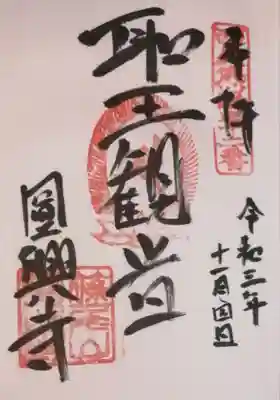 奉拝
令和三年
十一月四日
聖観音
圓興寺